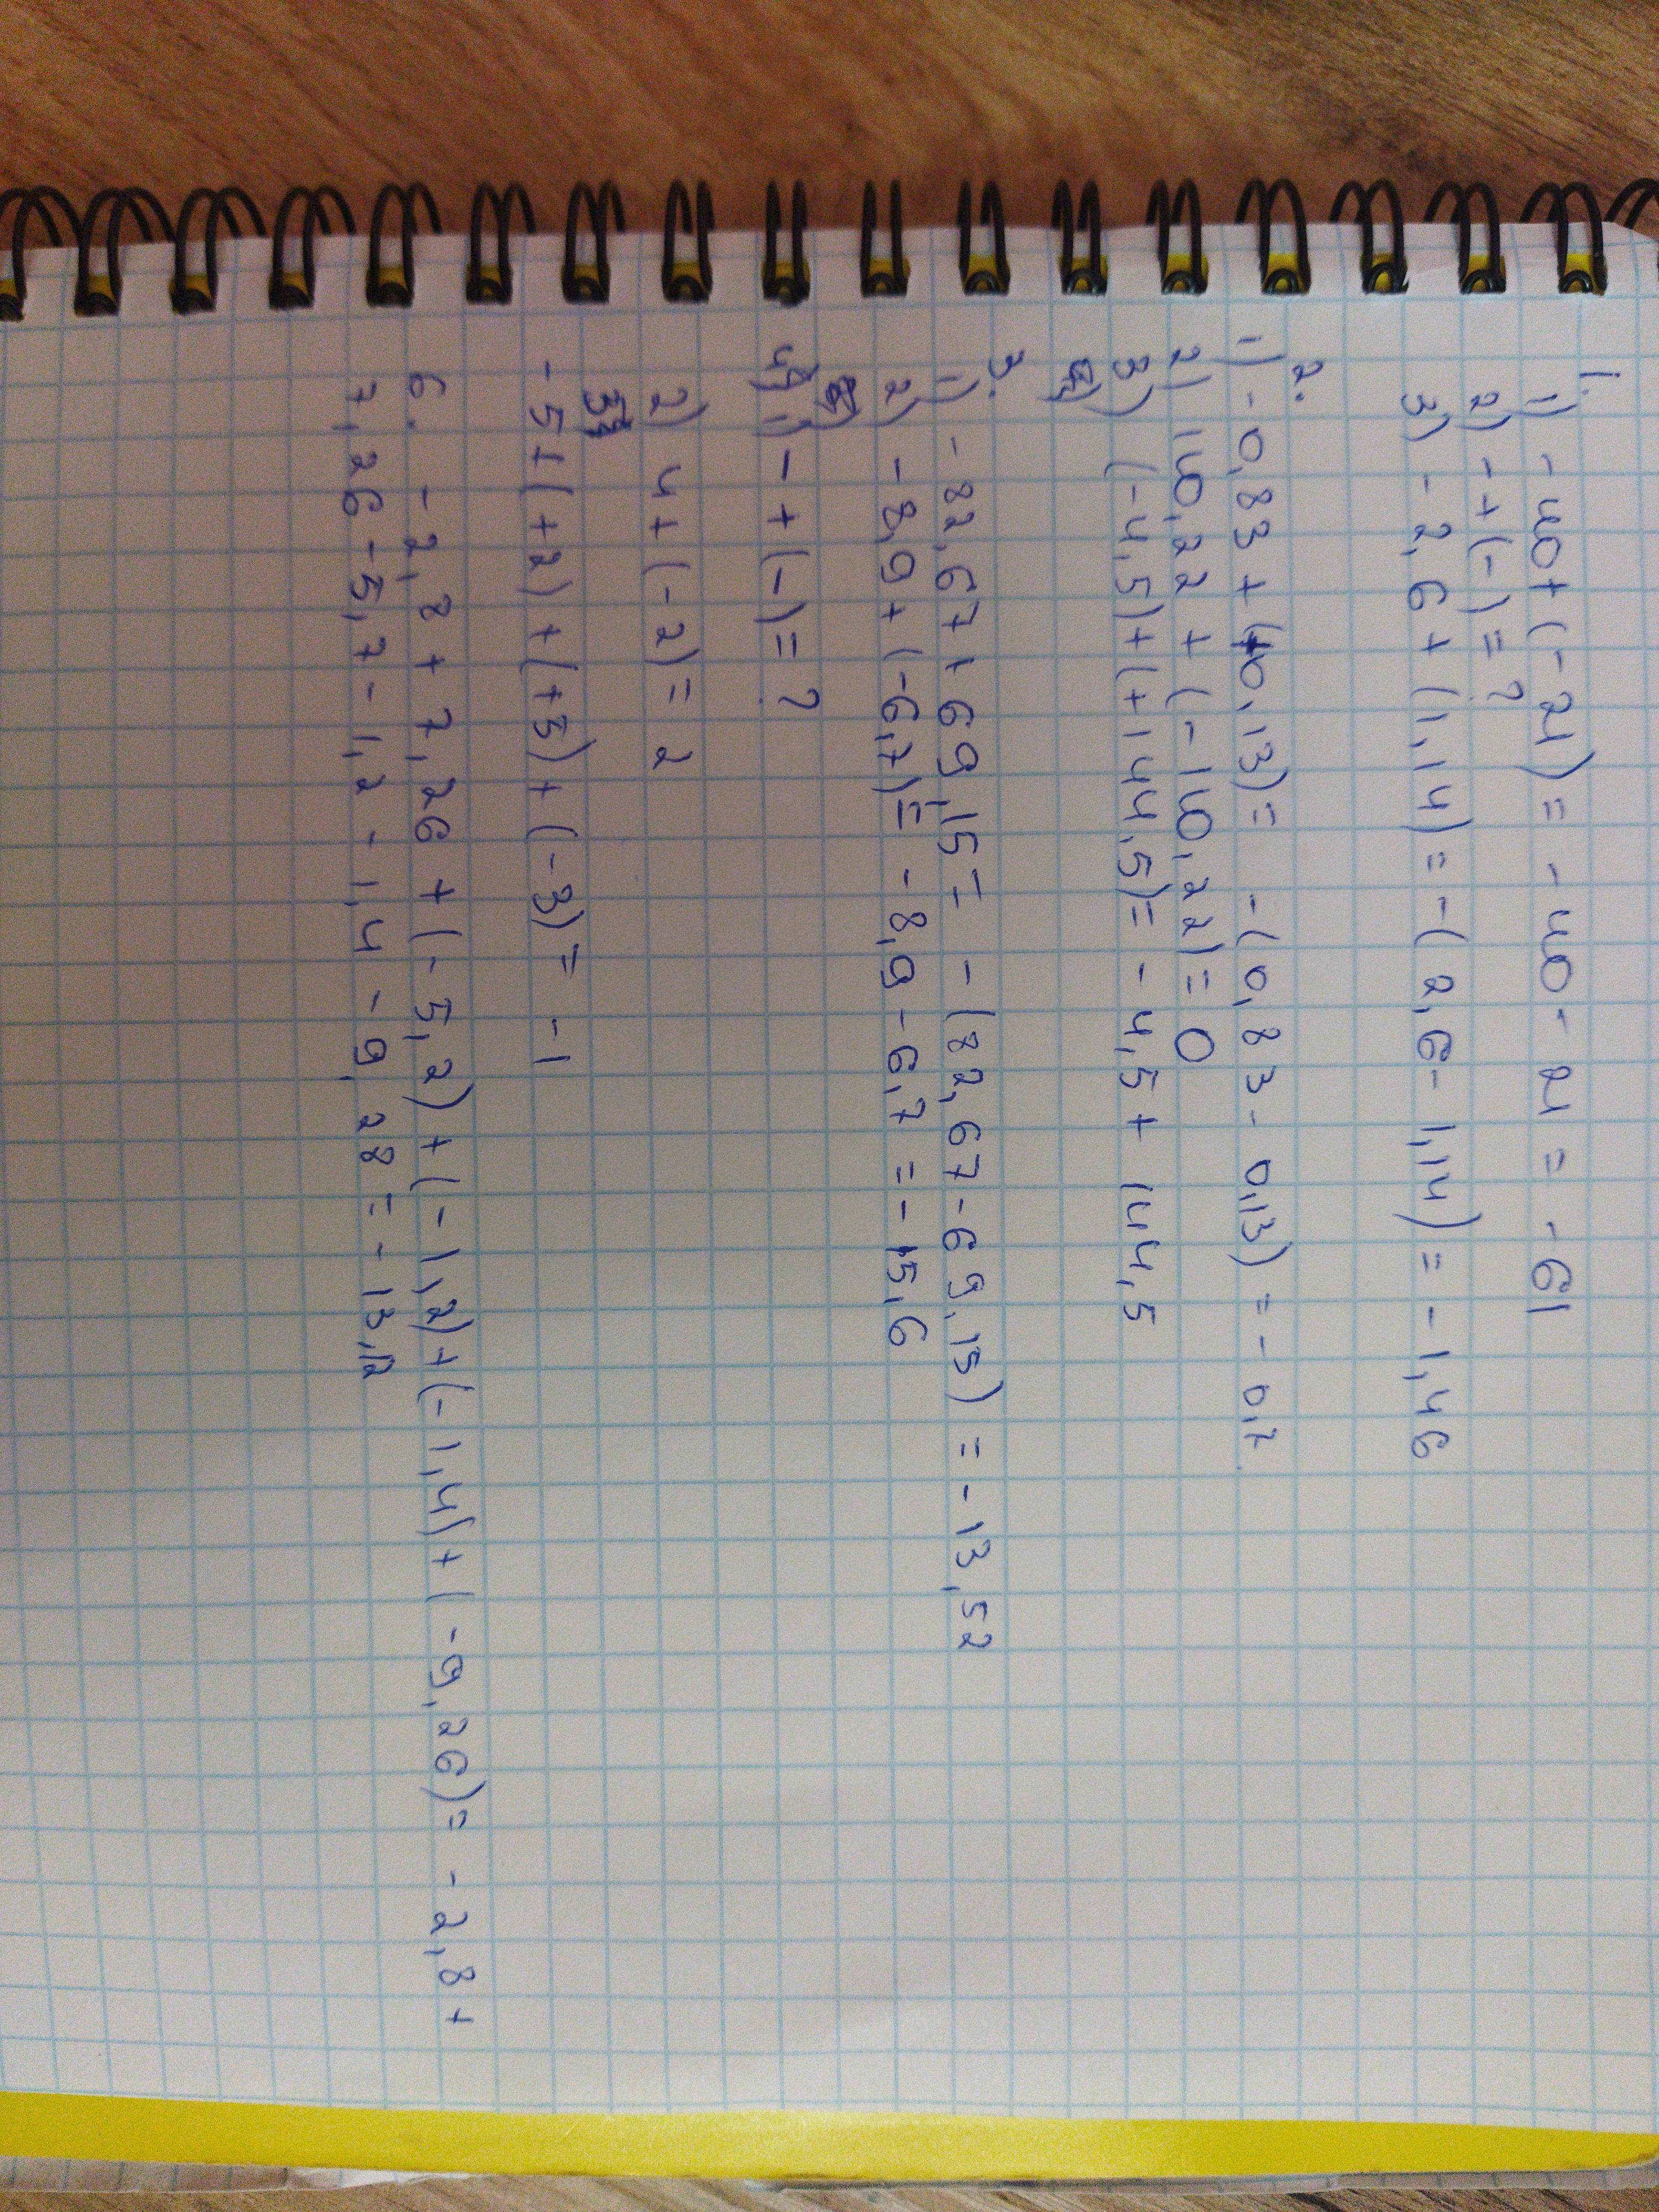 1.
1) - 40 + (- 21) = - 40 - 21 = - 61
2) - + (-) = ?
3) - 2,6 + (1,14) = - (2,6 - 1,14) = - 1,46
2.
1) - 0,83 + (+0,13) = - (0,83 - 0,13) = - 0,7
2) 140,22 + (- 140,22) = 0
3) (- 4,5) + (+ 144,5) = - 4,5 + 144,5
3.
1) - 82,67 + 69,15 = - (82,67 - 69,15) = - 13,52
2) - 8,9 + (- 6,7) = - 8,9 - 6,7 = - 15,6
4) 1) - + (-) = ?
2) 4 + (- 2) = 2
- 5 + (+ 2) + (+ 5) + (- 3) = - 1
6. - 2,8 + 7,26 + (- 5,2) + (- 1,2) + (- 1,4) + (- 9,26) = - 2,8 +
7,26 - 5,7 - 1,2 - 1,4 - 9,28 = - 13,12